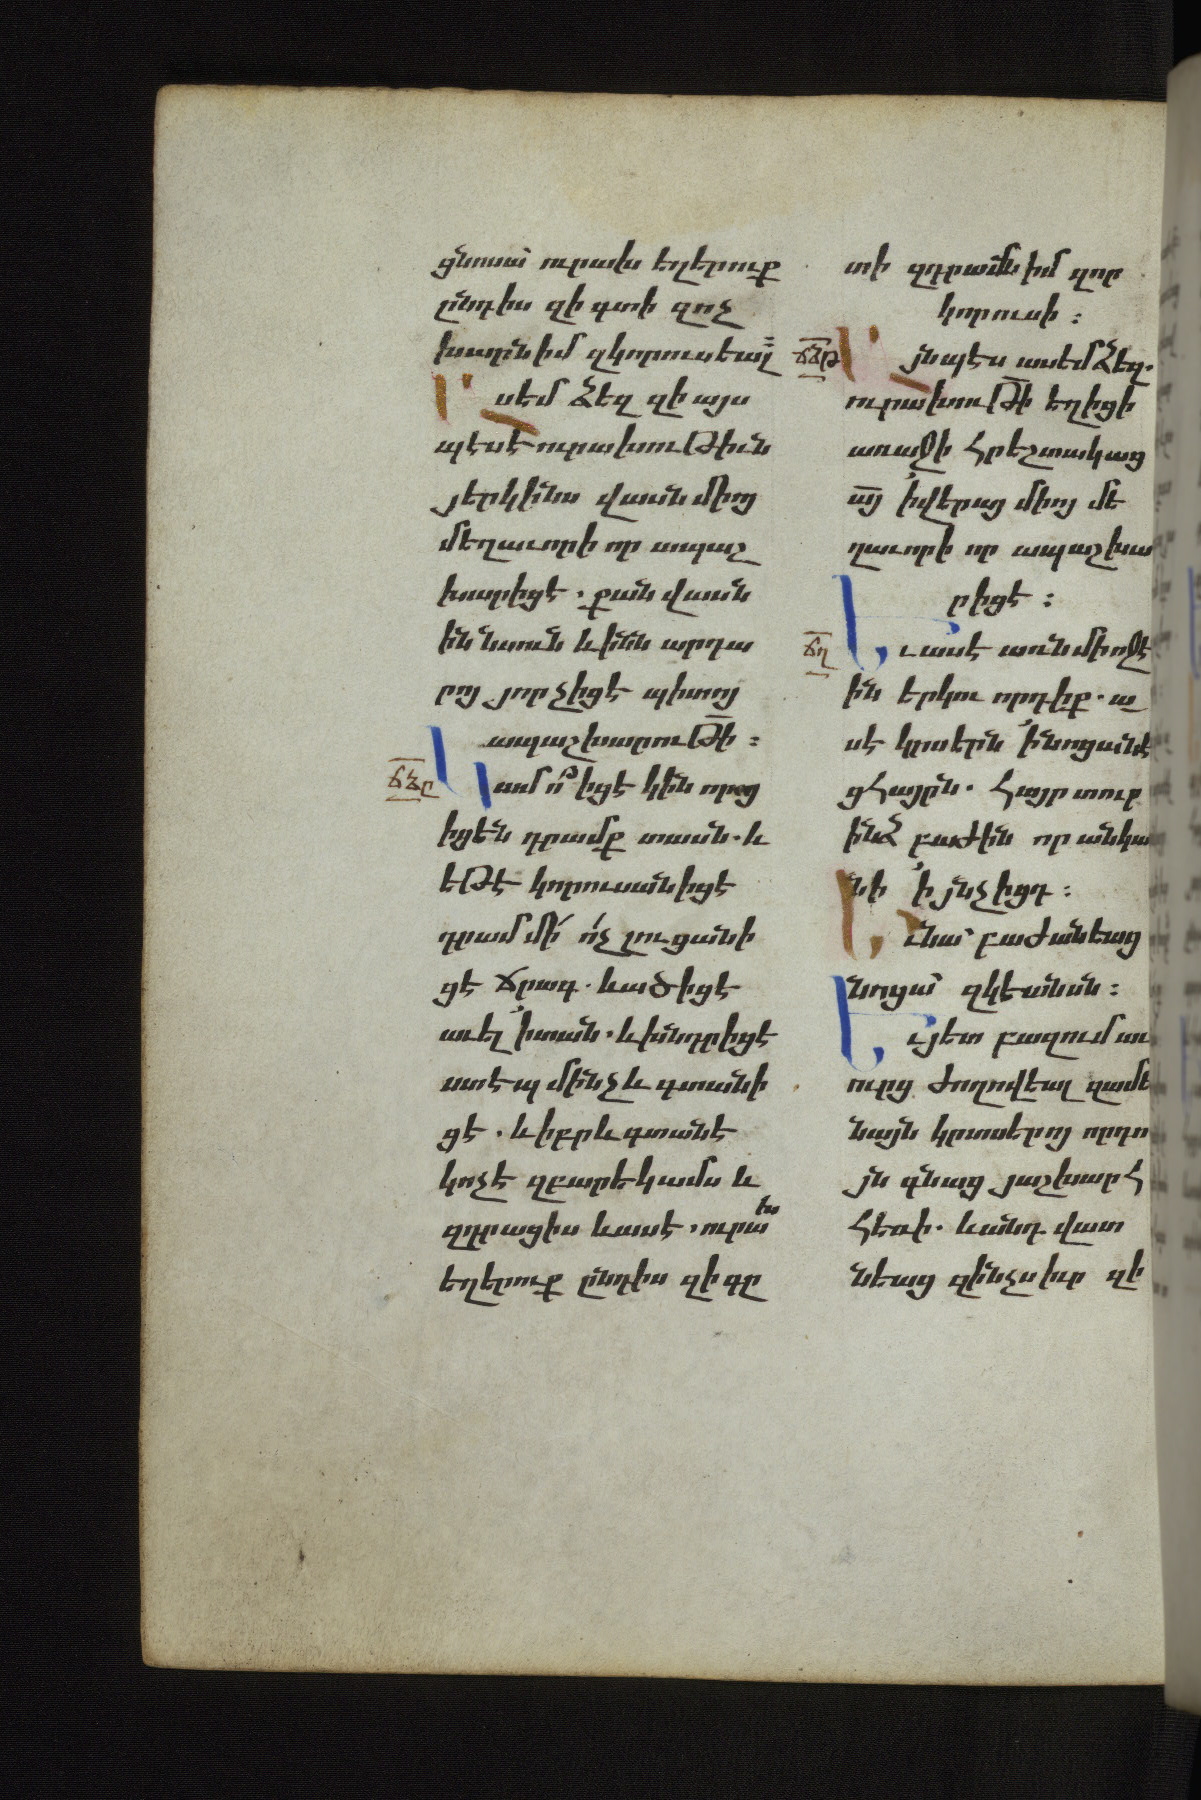 ցնոսա՝ ուրախ եղերուք
ընդիս զի գտի զոչ
խարն իմ զկորուսեալ̄ ։
Ասեմ ձեզ զի այս
պէս է ուրախութիւն
յերկինս վասն միոյ
մեղաւորի որ ապաշ
խարիցէ . քան վասն
իննսուն և ինն արդա
րոյ յոր չիցէ պիտոյ
ապաշխարութի̄ ։
ՃՁԸ
Կամ ո՞ իցէ կին որոց
իցեն դրամք տասն . և
եթէ կորուսանիցէ
դրամ մի՛ ո՛չ լուցանի
ցէ ճրագ . և ածիցէ
աւել ՚ի տան . և խնդրիցէ
ստէպ մինչև գտանի
ցէ . և իբրև գտանէ
կոչէ զբարեկամս և
զդրացիս և ասէ . ուրախ
եղերուք ընդիս զի գը
տի զդրամն իմ զոր
կորուսի ։
ՃՁԹ
Այնպէս ասեմ ձեզ .
ուրախութի̄ եղիցի
առաջի հրեշտակաց
ա̄յ ՚ի վերայ միոյ մե
ղաւորի որ ապաշխա
րիցէ ։
ՃՂ
Եւ ասէ առն միոջ է
ին երկու որդիք . ա
սէ կրտսերն ՚ի նոցանէ
ցհայրն . հայր տուր
ինձ բաժին որ անկա
նի ՚ի յնչիցդ ։
Եւ նա՝ բաժանեաց
նոցա՝ զկեանսն ։
Եւ յետ բազում աւ
ուրց ժողովեալ զամե
նայն կրտսերոյ որդո
յն գնաց յաշխարհ
հեռի . և անդ վատ
նեաց զինչս իւր զի